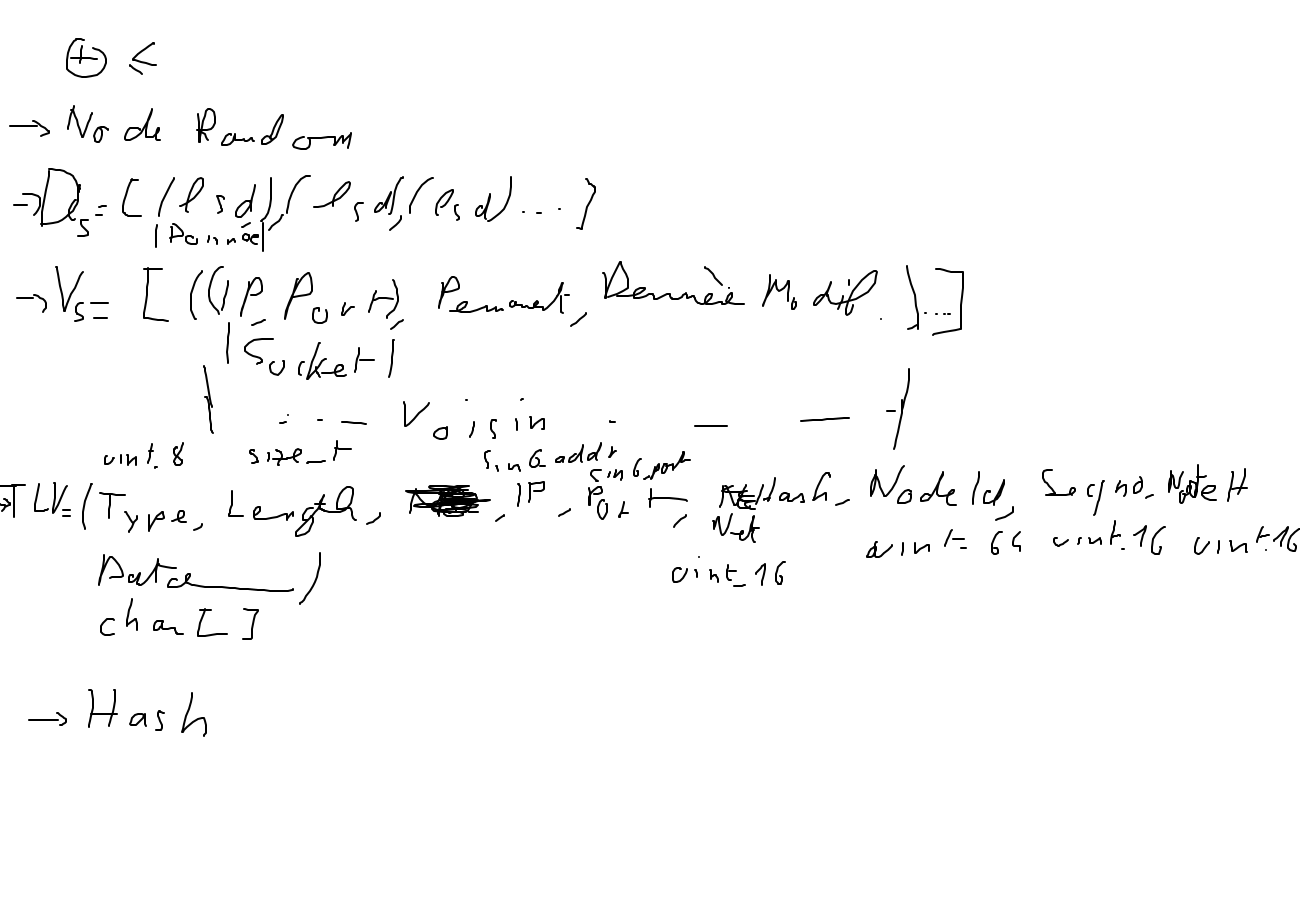 ⊕ ≤
→ Node Random
→ Ds = [(lsd),(lsd),(lsd)...]
|Donnée|
→ Vs = [((IP, Port), Permanent, Dernière Modif.)...]
|Socket|
| ... — Voisin . — — |
uint.8 size_t Sin6_addr Sin6_port
→ TLV = (Type, Length, , IP, Port, Hash, NodeId, Seqno, NodeH
Net uint_64 uint_16 uint_16
uint_16
Data )
char[]
→ Hash